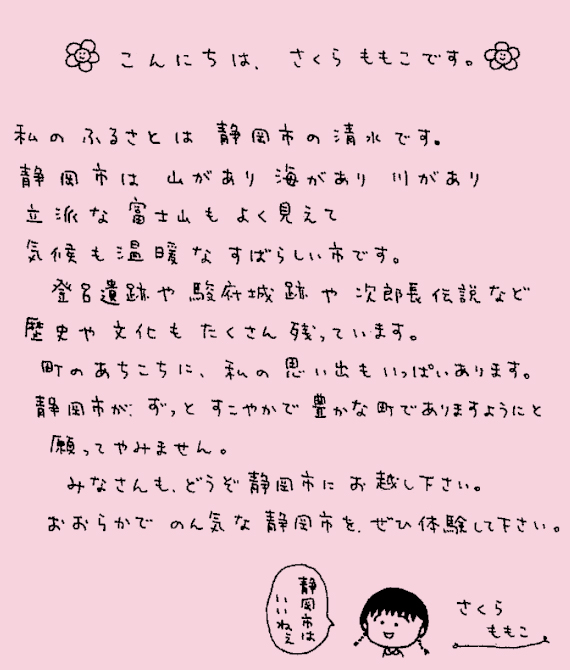 こんにちは、さくらももこです。
私のふるさとは静岡市の清水です。
静岡市は 山があり 海があり 川があり
立派な富士山もよく見えて
気候も温暖なすばらしい市です。
登呂遺跡や駿府城跡や次郎長伝説など
歴史や文化もたくさん残っています。
町のあちこちに、私の思い出もいっぱいあります。
静岡市が、ずっとすこやかで豊かな町でありますようにと
願ってやみません。
みなさんも、どうぞ静岡市にお越し下さい。
おおらかでのん気な静岡市を、ぜひ体験して下さい。
静岡市は
いいねぇ
さくら
ももこ